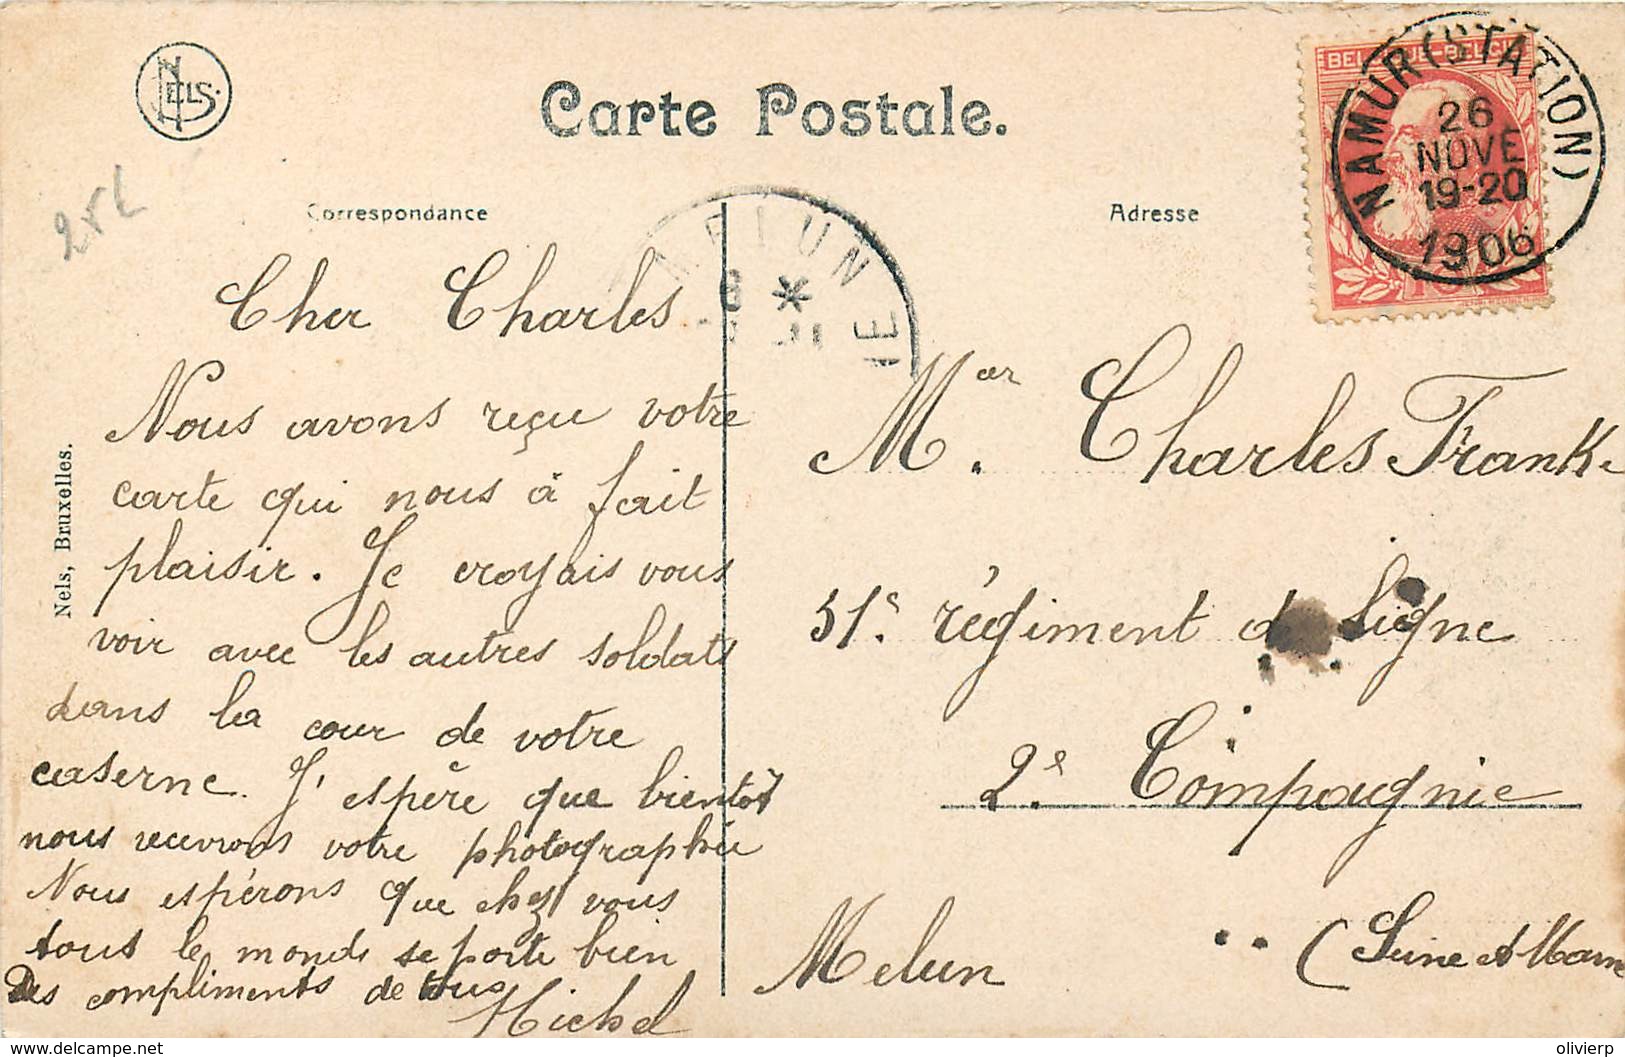 NELS.
Carte Postale.
BELGIQUE-BELGIË
NAMUR (STATION)
26
NOVE
19-20
1906
25 L
Correspondance
Adresse
MELUN
Cher Charles
Nous avons reçu votre
carte qui nous à fait
plaisir. Je croyais vous
voir avec les autres soldats
dans la cour de votre
caserne. J'espère que bientôt
nous recevrons votre photographie
Nous espérons que chez vous
tous le monde se porte bien
Des compliments de tous
Michel
Nels, Bruxelles.
Mr. Charles Frank
31e. régiment de ligne
2e. Compagnie
Melun (Seine et Marne
delcampe.net
olivierp